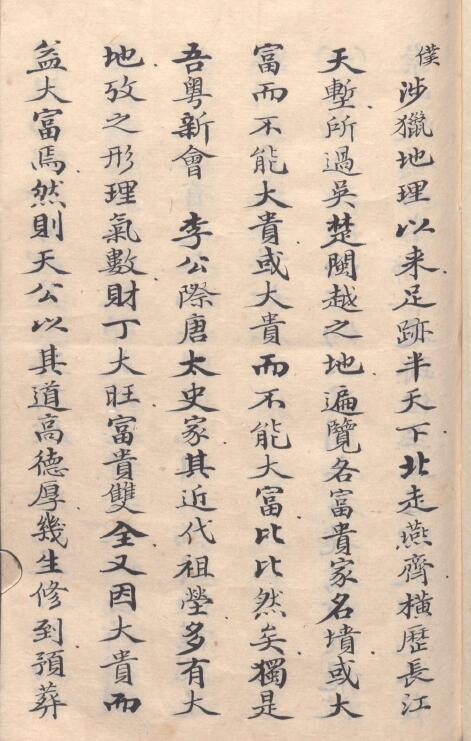 僕涉獵地理以来足跡半天下北走燕齊橫歷長江
天塹所過吳楚閩越之地遍覽各富貴家名墳或大
富而不能大貴或大貴而不能大富比比然矣獨是
吾粵新會李公際唐太史家其近代祖塋多有大
地攷之形理氣數財丁大旺富貴雙全又因大貴而
益大富焉然則天公以其道高德厚幾生修到預葬